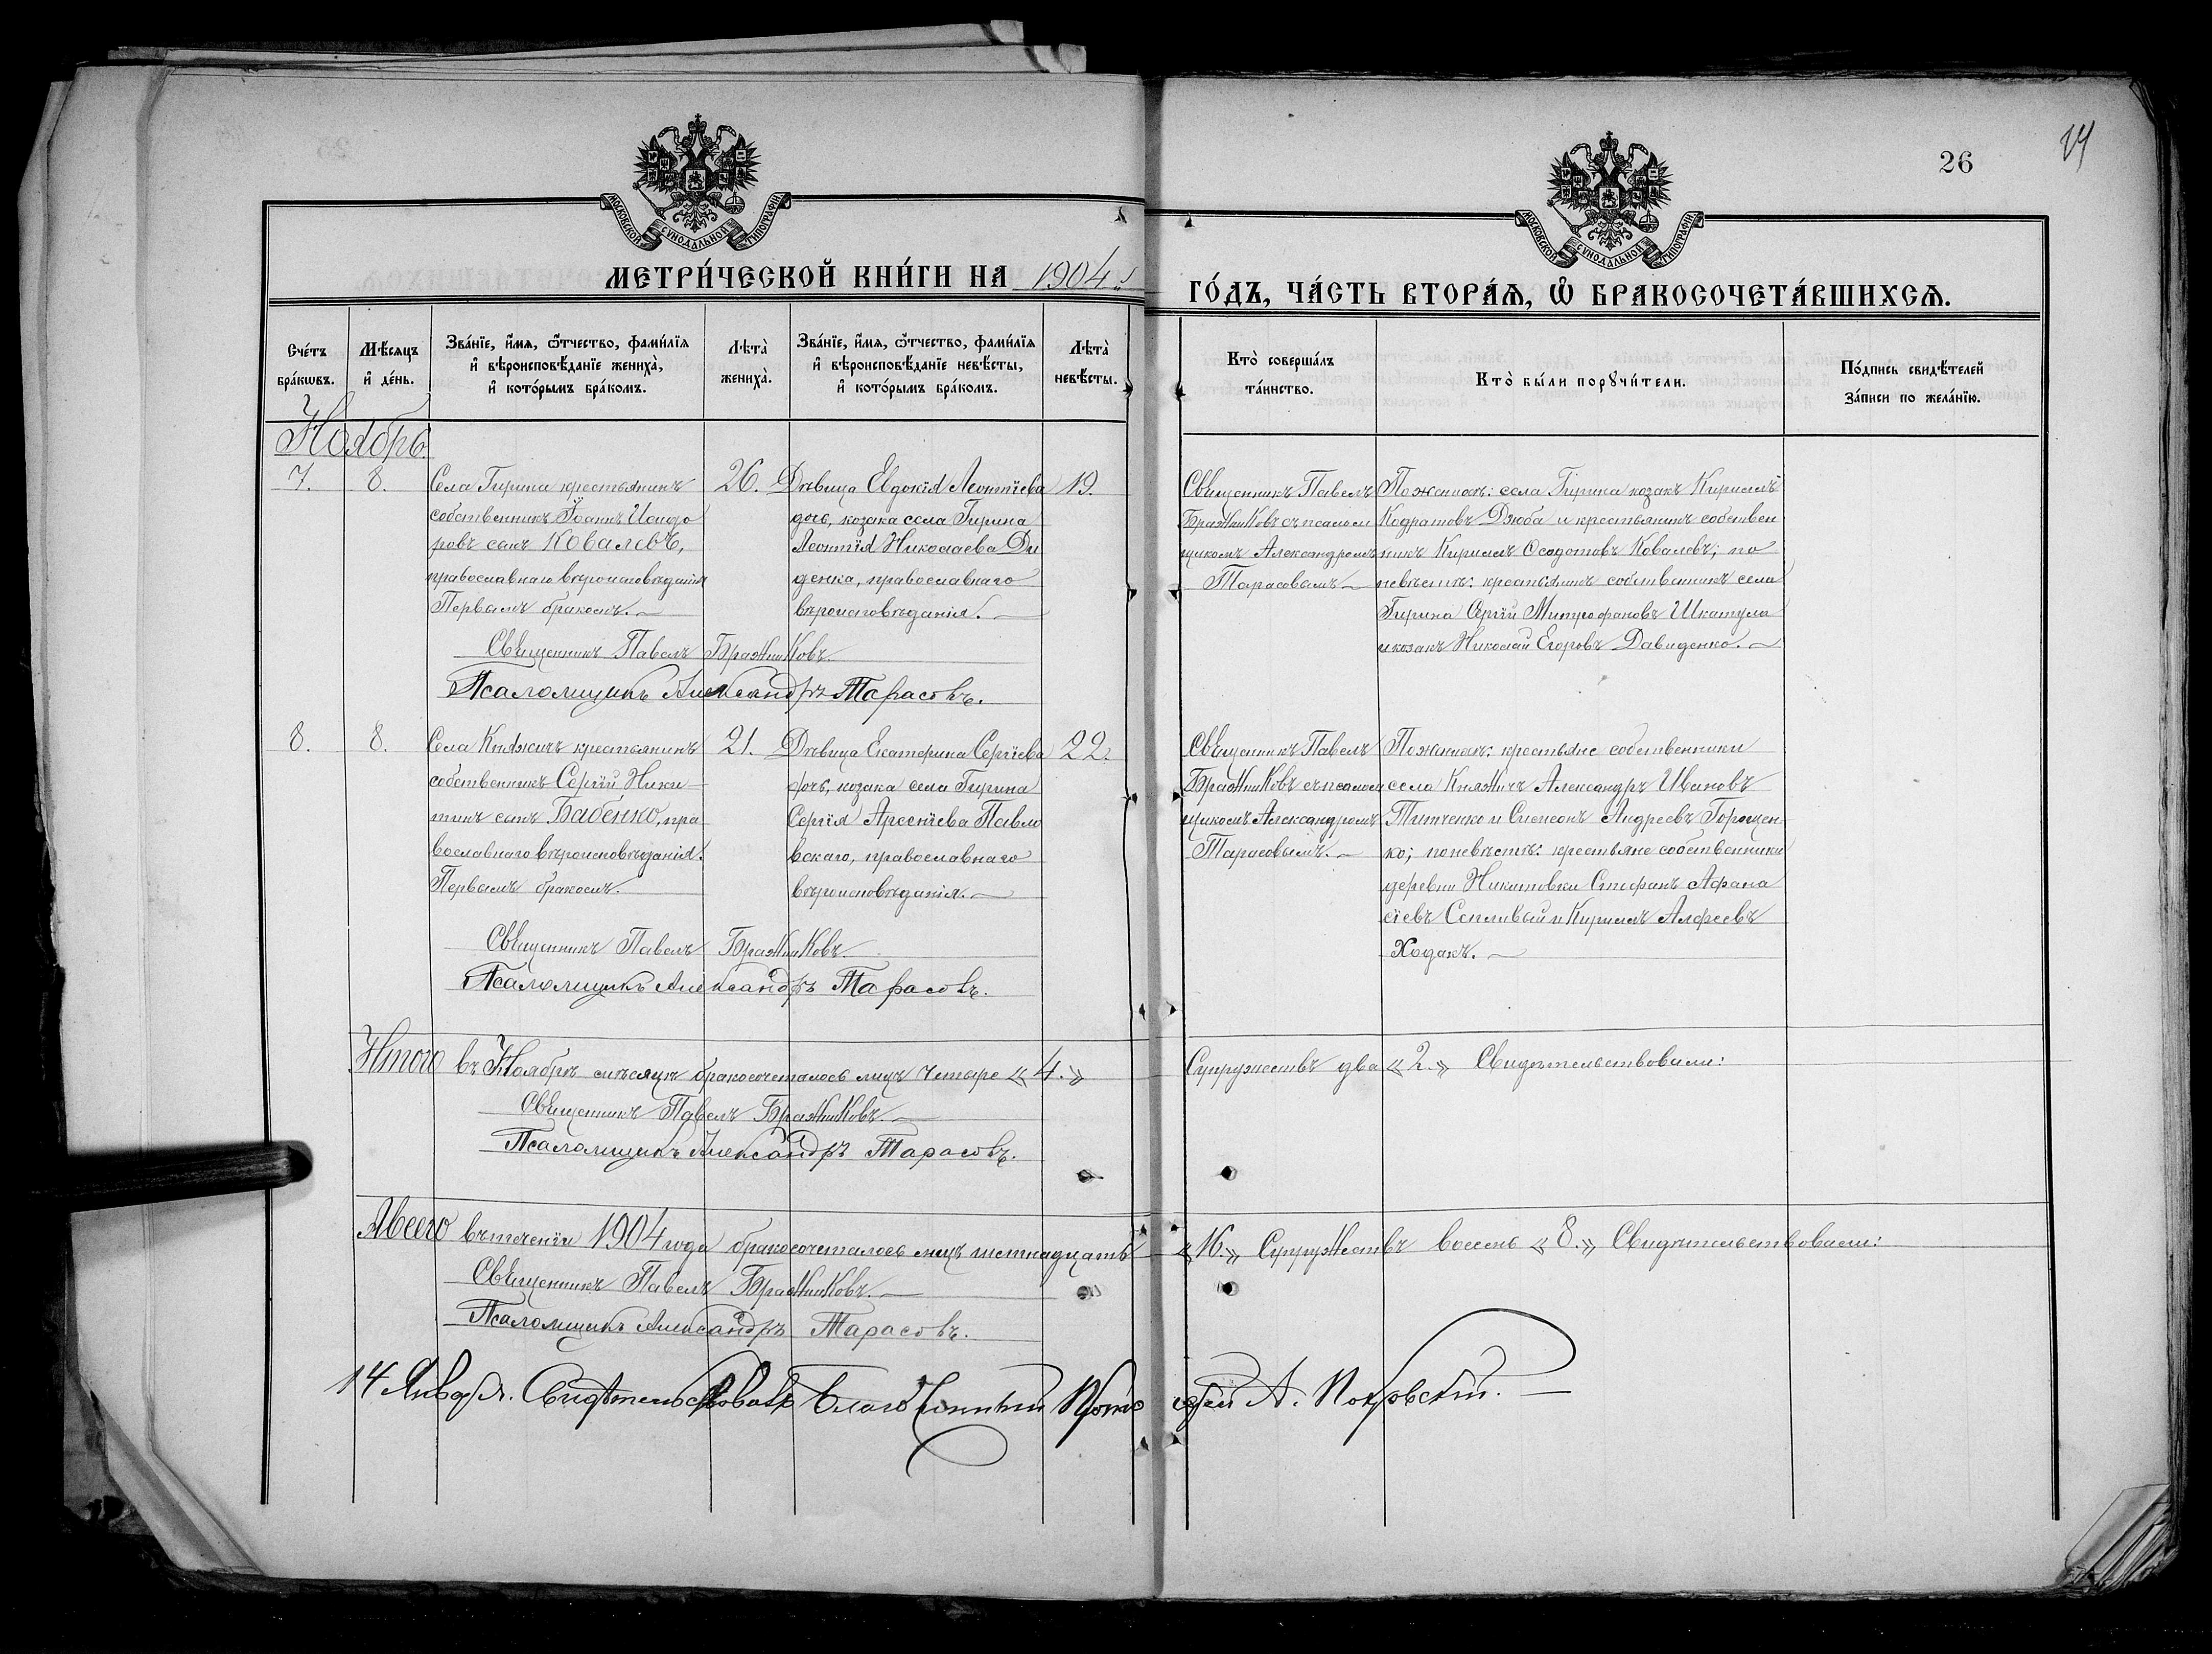 26
24
МОСКОВСКОЙ СѴНОДАЛЬНОЙ ТИПОГРАФІИ
МОСКОВСКОЙ СѴНОДАЛЬНОЙ ТИПОГРАФІИ
МЕТРИ́ЧЕСКОЙ КНИ́ГИ НА 1904
ГО́ДЪ, ЧА́СТЬ ВТОРА́Ѧ, Ѡ҆ БРАКОСОЧЕТА́ВШИХСѦ.
Сче́тъ
бра́кѡвъ.
Мѣ́сяцъ
и҆ де́нь.
Зва́нїе, и҆́мѧ, ѻ҆́тчество, фами́лїѧ
и҆ вѣроисповѣ́данїе жениха̀,
и҆ кото́рымъ бра́комъ.
Лѣта̀
жениха̀.
Зва́нїе, и҆́мѧ, ѻ҆́тчество, фами́лїѧ
и҆ вѣроисповѣ́данїе невѣ́сты,
и҆ кото́рымъ бра́комъ.
Лѣта̀
невѣ́сты.
Кто̀ соверша́лъ
та́инство.
Кто̀ бы́ли порꙋчи́тели.
По́дпись свидѣ́телей
за́писи по жела́нїю.
Ноябрь.
7.
8.
Села Гирина крестьянинъ
собственникъ Іоаннъ Исидо
ровъ сынъ Ковалевъ,
православнаго вѣроисповѣданія
Первымъ бракомъ.
26.
Дѣвица Евдокія Леонтіева
дочь, козака села Гирина
Леонтія Николаева Ди
денка, православнаго
вѣроисповѣданія.
19.
Священникъ Павелъ
Бражниковъ съ псалом
щикомъ Александромъ
Тарасовымъ
По женихѣ: села Гирина козакъ Кириллъ
Кодратовъ Дзюба и крестьянинъ собствен
никъ Кириллъ Осодотовъ Ковалевъ; по
невѣстѣ: крестьянинъ собственникъ села
Гирина Сергій Митрофановъ Шкатула
и козакъ Николай Егоровъ Давиденко.
Священникъ Павелъ Бражниковъ.
Псаломщикъ Александръ Тарасовъ.
8.
8.
Села Княжичъ крестьянинъ
собственникъ Сергій Ники-
тинъ сынъ Бабенко, пра-
вославнаго вѣроисповѣданія.
Первымъ бракомъ.
21.
Дѣвица Екатерина Сергіева
дочь, козака села Гирина
Сергія Арсеніева Павло
вскаго, православнаго
вѣроисповѣданія.
22.
Священникъ Павелъ
Бражниковъ съ псалом
щикомъ Александромъ
Тарасовымъ.
По женихѣ: крестьяне собственники
села Княжичъ Александръ Ивановъ
Титченко и Симеонъ Андреевъ Горощен-
ко; по невѣстѣ: крестьяне собственники
деревни Никитовки Стефанъ Афана
сіевъ Сопливый и Кириллъ Алфеевъ
Ходакъ.
Священникъ Павелъ Бражниковъ.
Псаломщикъ Александръ Тарасовъ.
Итого въ Ноябрѣ мѣсяцѣ бракосочеталось лицъ четыре «4.»
Супружествъ два «2.» Свидѣтельствовали:
Священникъ Павелъ Бражниковъ.
Псаломщикъ Александръ Тарасовъ.
Авсего въ теченіи 1904 года бракосочеталось лицъ шетнадцать
«16.» Супружествъ восемь «8.» Свидѣтельствовали:
Священникъ Павелъ Бражниковъ.
Псаломщикъ Александръ Тарасовъ.
14 Января. Свидѣтельствовалъ Благочинный Протоіерей А. Покровскій.